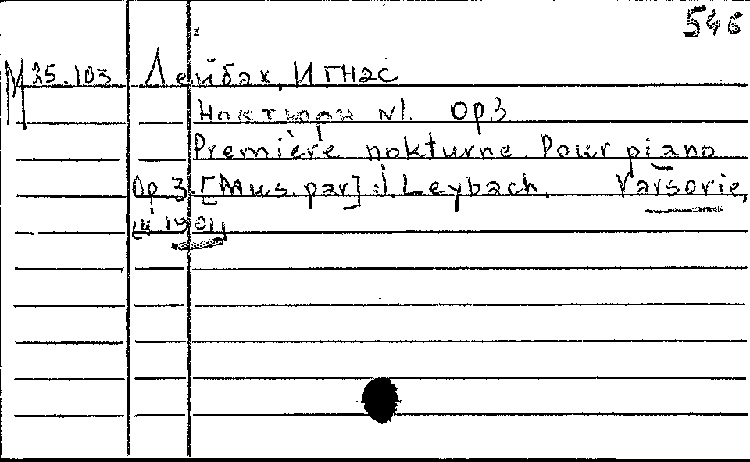 546
М 25.103 Лейбах, Игнас
Ноктюрн N1. Op.3
Première nokturne. Pour piano
Op.3. [Mus. par] J. Leybach. Varsovie,
1901